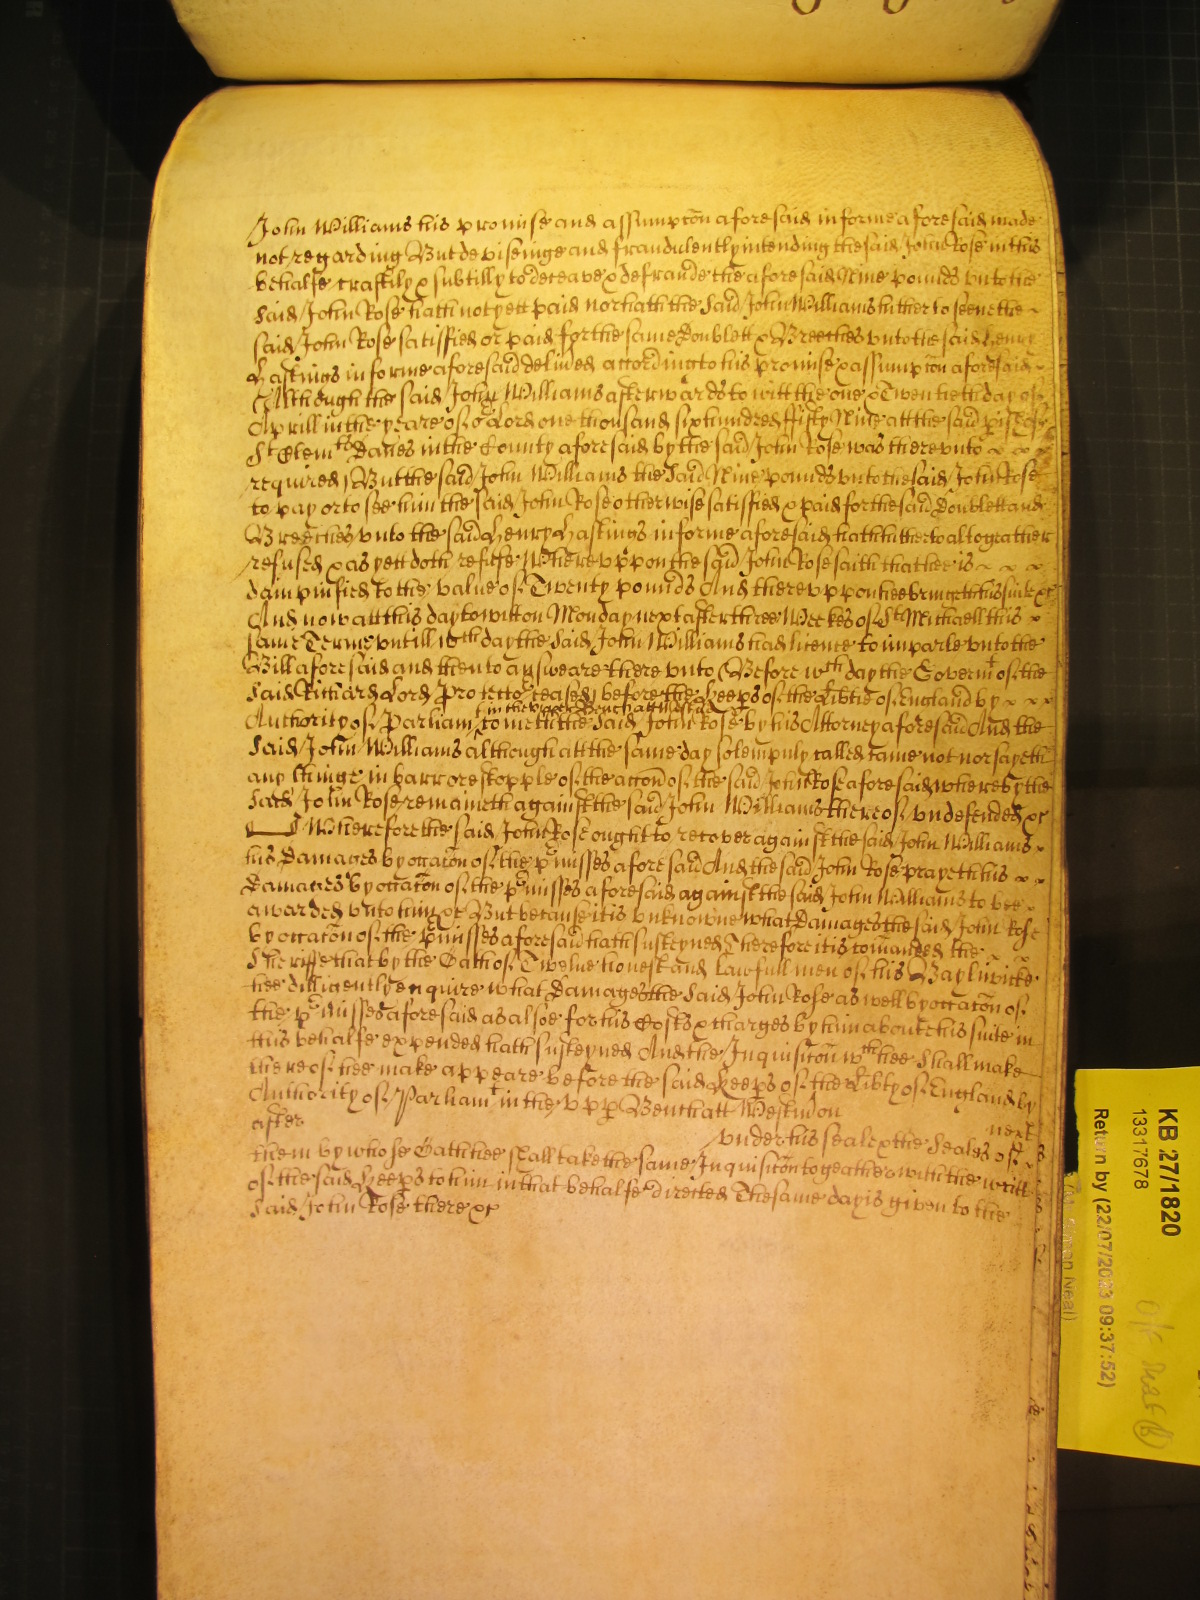 John Williams his promise and assumpcōn aforesaid in forme aforesaid made
not regarding But devisenge and fraudulently intending the said John Rose in this
behalfe craftily & subtilly to deceave & defraude the aforesaid Nine pounds vnto the
said John Rose hath not yett paid nor hath the said John Williams hitherto seene the
said John Rose satisfied or paid for the same Doublett & Breeches vnto the said Henry
Hastings in forme aforesaid deliūed according to his promise & assumpcōn aforesaid
Although the said John Williams afterwards to witt the one & Twentieth day of
Aprill in the yeare of oʳ Lord one thousand six hundred fifty Nine att the said pish of
Sᵗ Clemᵗˢ Danes in the County aforesaid by the said John Rose was therevnto
required But the said John Williams the said Nine pounds vnto the said John Rose
to pay or to see him the said John Rose otherwise satisfied & paid for the said Doublett and
Breeches vnto the said Henry Hastings in forme aforesaid hath hitherto altogeather
refused & as yett doth refuse Wherevppon the said John Rose saith that he is
dampnified to the value of Twenty pounds And therevppon hee bringeth his suite &c
And now att this day to witt on Monday next after three Weekes of Sᵗ Michaell this
same Terme vntill wᶜʰ day the said John Williams had licence to imparle vnto the
Bill aforesaid and then to answeare there vnto Before wᶜʰ day the Governmᵗ of the
said Richard Lord Protectoʳ ceased before the Keeps of the Libtie of England by
in the vpper Bench att Westmʳ
Authority of Parliamᵗ cometh the said John Rose by his Attorney aforesaid And the
said John Williams although att the same day solempnly called came not nor sayeth
any thinge in barr or estopple of the accon of the said John Rose aforesaid whereby the
said John Rose remaineth against the said John Williams thereof vndefended &c
Wherefore the said John Rose ought to recover against the said John Williams
his Damages by occacōn of the pʳmisses aforesaid And the said John Rose prayeth his
Damages by occacōn of the pʳmisses aforesaid against the said John Williams to bee
awarded vnto him &c But because it is vnknowne what Damages the said John Rose
by occacōn of the pʳmisses aforesaid hath susteyned Therefore it is com̄anded the
Sheriffe that by the Oath of Twelue honest and lawfull men of his Baylywicke
hee dilligently enquire what Damages the said John Rose as well by occacōn of
the pʳmisses aforesaid as alsoe for his Costs & charges by him about his suite in
this behalfe expended hath susteyned And the Inquisicōn wᶜʰ hee shall make
thereof hee make appeare before the said Keeps of the Libty of England by
Authority of Parliamᵗ in the vpp Bench att Westm̄ on
after next
vnder his seale & the seales of
them by whose Oath hee shall take the same Inquisicōn togeather with the writt
of the said Keeps to him in that behalfe directed The same day is given to the
said John Rose there &c
KB 27/1820
13317678
Return by (22/07/2023 09:37:52)